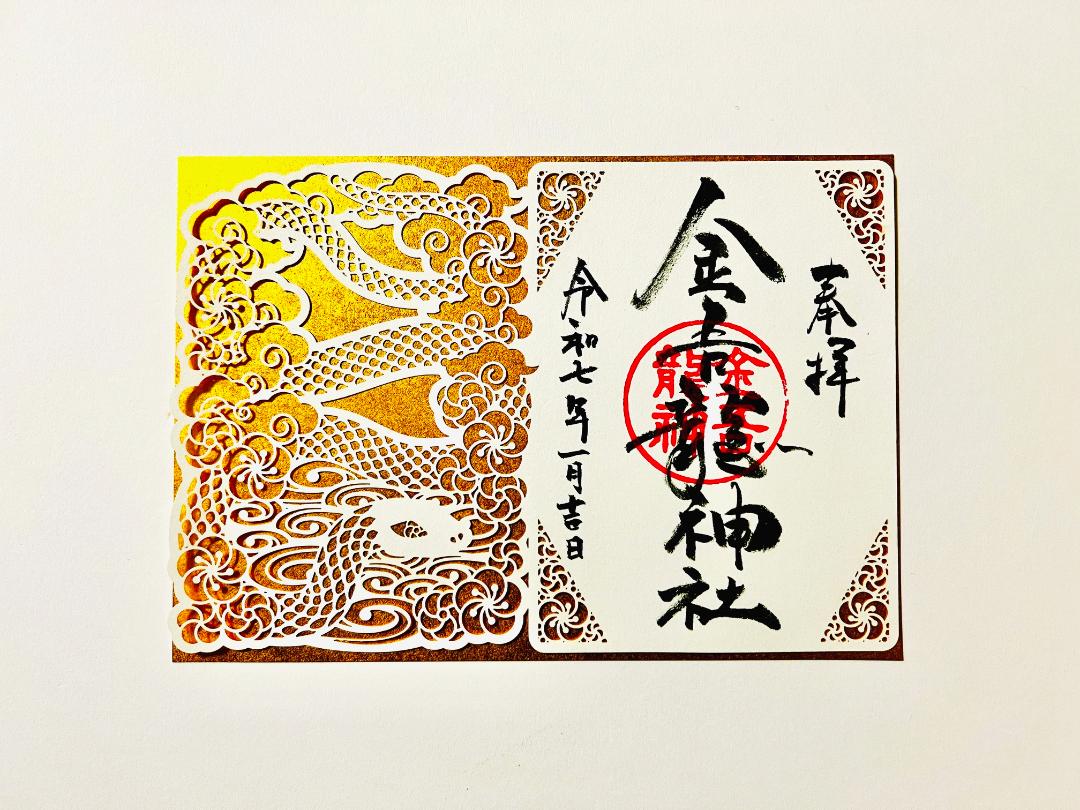 奉拝
金吉龍神社
金吉
龍神
令和七年一月吉日